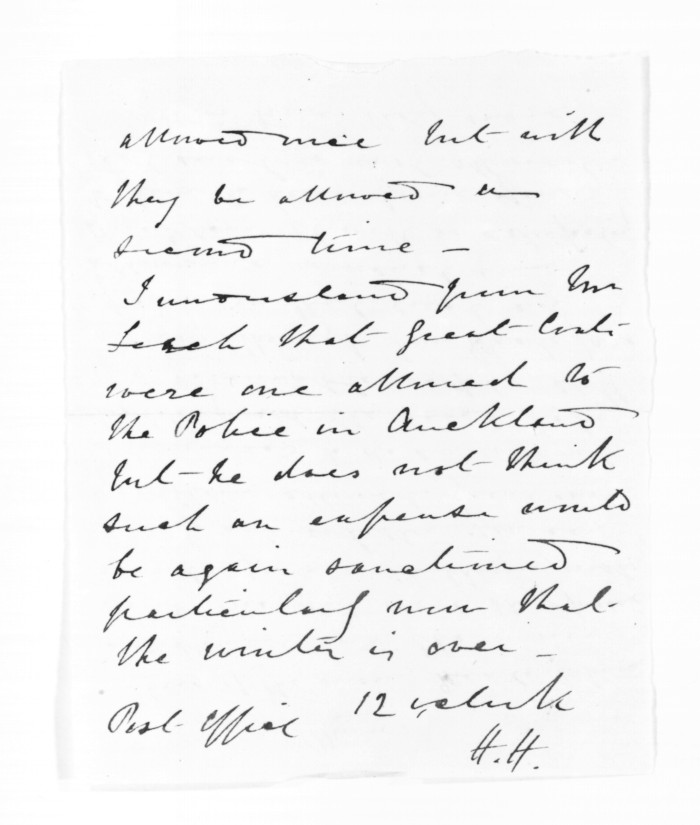 allowed once but will
they be allowed a
second time -
I understand from Mr
Leach that Great Coats
were once allowed to
the Police in Auckland
but he does not think
such an expense would
be again sanctioned
particularly now that
the winter is over -
Post Office 12 o'clock
H.H.